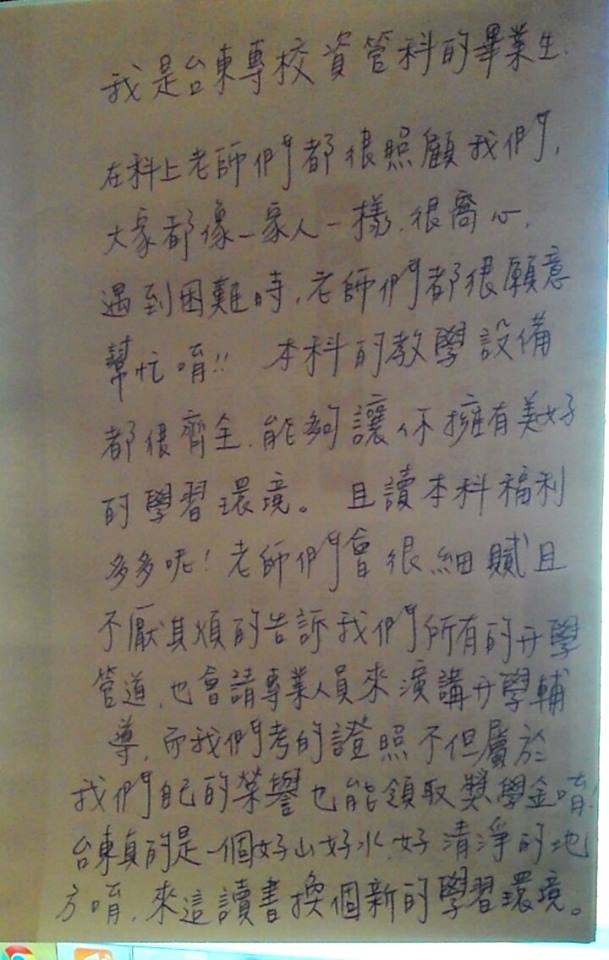 我是台東專校資管科的畢業生.
在科上老師們都很照顧我們,
大家都像一家人一樣.很窩心.
遇到困難時,老師們都很願意
幫忙唷!! 本科的教學設備
都很齊全.能夠讓你擁有美好
的學習環境。 且讀本科福利
多多呢!老師們會很細膩且
不厭其煩的告訴我們所有的升學
管道,也會請專業人員來演講升學輔
導,而我們考的證照不但屬於
我們自己的榮譽也能領取獎學金唷!
台東真的是一個好山好水.好清淨的地
方唷,來這讀書換個新的學習環境。